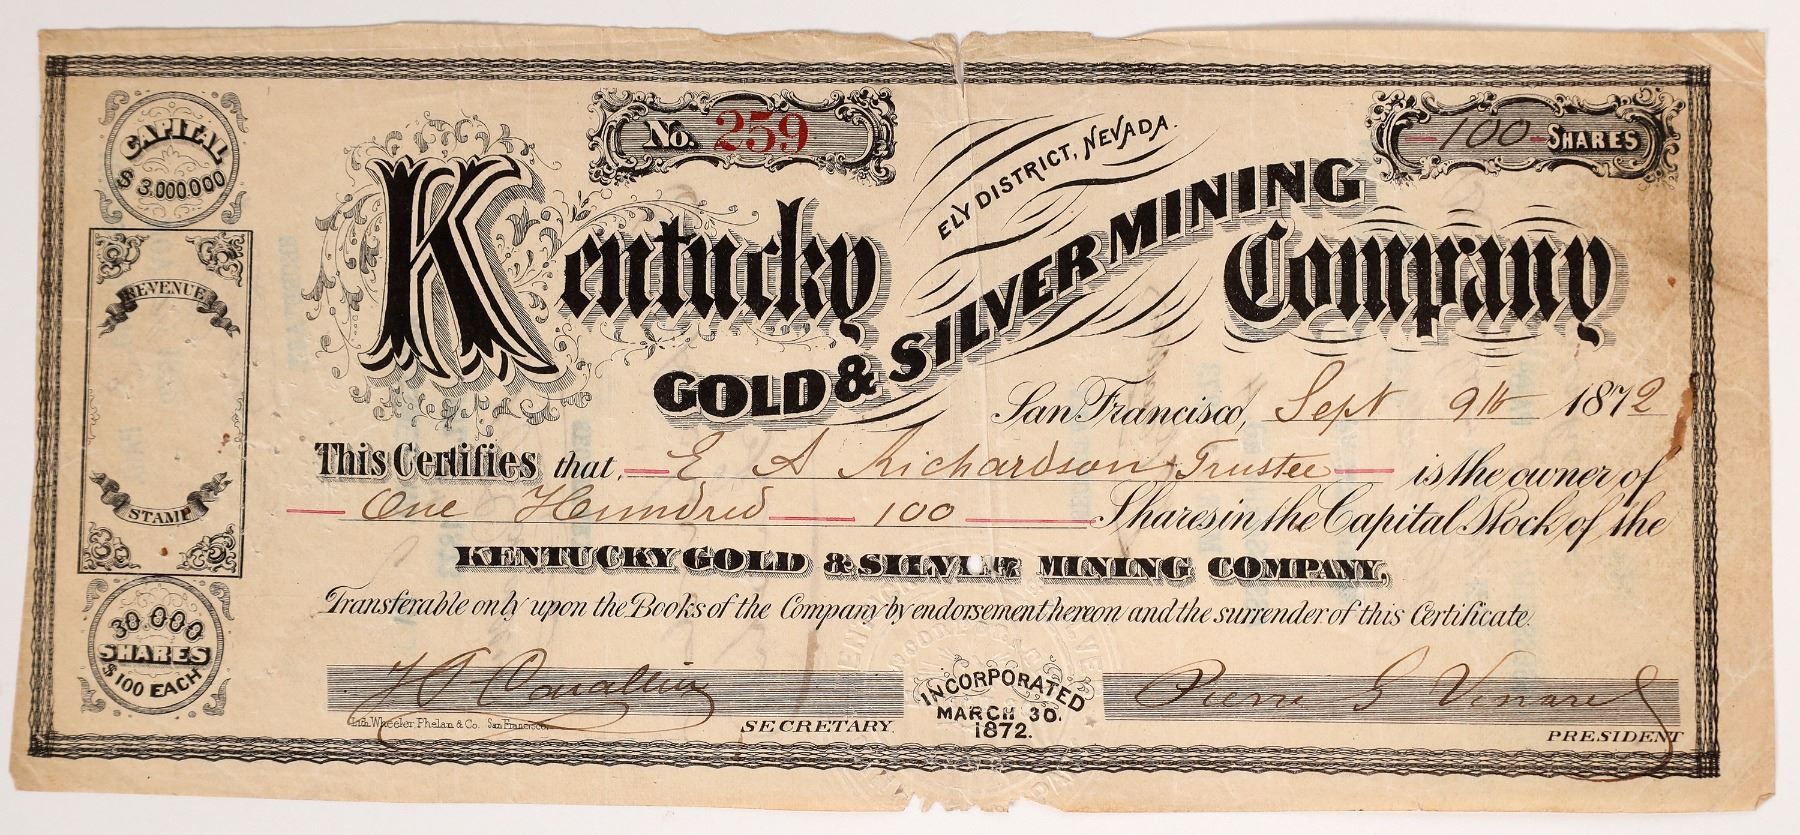 No. 259
100 SHARES
CAPITAL
$3.000.000
ELY DISTRICT, NEVADA.
Kentucky
GOLD & SILVER MINING
Company
REVENUE
STAMP
San Francisco, Sept 9th 1872
This Certifies that E A Richardson Trustee is the owner of
One Hundred 100 Shares in the Capital Stock of the
KENTUCKY GOLD & SILVER MINING COMPANY,
Transferable only upon the Books of the Company by endorsement hereon and the surrender of this Certificate.
30.000
SHARES
$100 EACH
INCORPORATED
MARCH 30.
1872.
Pierre G Venard
Lith. Wheeler Phelan & Co. San Francisco.
SECRETARY.
PRESIDENT